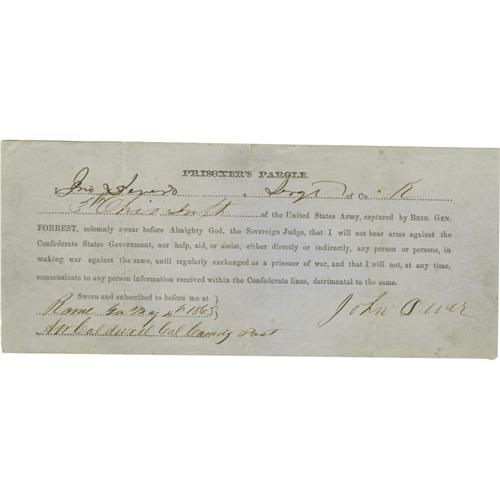 PRISONER'S PAROLE.
I, Jno a Sergt of Co. K
3rd Ohio Inft of the United States Army, captured by BRIG. GEN.
FORREST, solemnly swear before Almighty God, the Sovereign Judge, that I will not bear arms against the
Confederate States Government, nor help, aid, or assist, either directly or indirectly, any person or persons, in
making war against the same, until regularly exchanged as a prisoner of war, and that I will not, at any time,
communicate to any person information received within the Confederate lines, detrimental to the same.
Sworn and subscribed to before me at
Rome Geo May 4th 1863
John
A W Caldwell Col Comdg Post